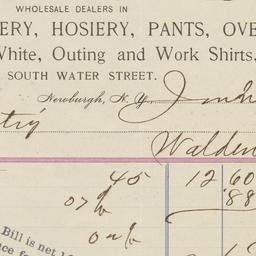 WHOLESALE DEALERS IN
ERY, HOSIERY, PANTS, OVE
White, Outing and Work Shirts,
SOUTH WATER STREET.
Newburgh, N. Y.
try
Walden
45 12 60
07 88
Bill is net